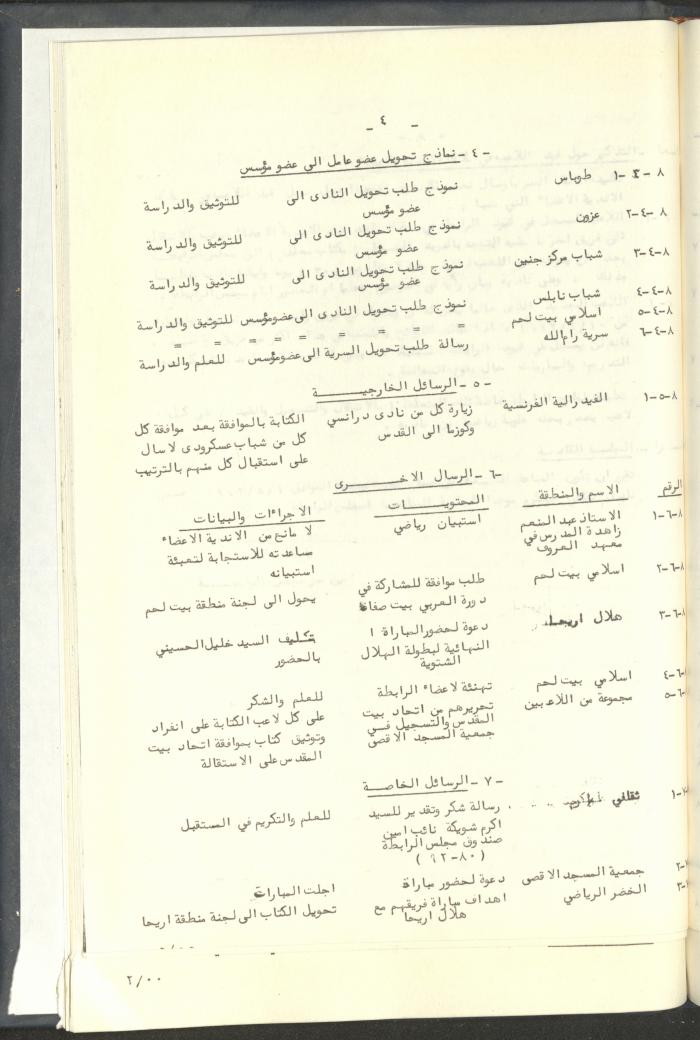 - ٤ -
- ٤ - نماذج تحويل عضو عامل الى عضو مؤسس
٨-٤-١ طوباس نموذج طلب تحويل النادى الى للتوثيق والدراسة
عضو مؤسس
٨-٤-٢ عزون نموذج طلب تحويل النادى الى للتوثيق والدراسة
عضو مؤسس
٨-٤-٣ شباب مركز جنين نموذج طلب تحويل النادى الى للتوثيق والدراسة
عضو مؤسس
٨-٤-٤ شباب نابلس نموذج طلب تحويل النادى الى عضو مؤسس للتوثيق والدراسة
٨-٤-٥ اسلامي بيت لحم = = = = = = = =
٨-٤-٦ سرية رام الله رسالة طلب تحويل السرية الى عضو مؤسس للعلم والدراسة
- ٥ - الرسائل الخارجيـــة
٨-٥-١ الفيدرالية الفرنسية زيارة كل من نادى درانسي الكتابة بالموافقة بعد موافقة كل
وكوزما الى القدس كل من شباب عسكرودى لاسال
على استقبال كل منهم بالترتيب
-٦ - الرسال الاخـــرى
الرقم الاسم والمنطقة المحتويـــات الاجراءات والبيانات
٨-٦-١ الاستاذ عبد المنعم استبيان رياضي لا مانع من الاندية الاعضاء
زاهدة المدرس في مساعدته للاستجابة لتعبئة
معهد العروف استبيانه
٨-٦-٢ اسلامي بيت لحم طلب موافقة للمشاركة في يحول الى لجنة منطقة بيت لحم
دورة العربي بيت صفافا
٨-٦-٣ هلال اريحا دعوة لحضور المباراة ا تكليف السيد خليل الحسيني
النهائية لبطولة الهلال بالحضور
الشتوية
٦-٤ اسلامي بيت لحم تهنئة لاعضاء الرابطة للعلم والشكر
٦-٥ مجموعة من اللاعبين تحريرهم من اتحاد بيت على كل لاعب الكتابة على انفراد
المقدس والتسجيل فـي وتوثيق كتاب بموافقة اتحاد بيت
جمعية المسجد الاقصى المقدس على الاستقالة
- ٧ - الرسائل الخاصـة
٧-١ ثقافي رسالة شكر وتقدير للسيد للعلم والتكريم في المستقبل
اكرم شويكة نائب امين
صندوق مجلس الرابطة
( ٨٠-٩٢ )
٢ جمعية المسجد الاقصى دعوة لحضور مباراة اجلت المباراة
٣ الخضر الرياضي اهداف مباراة فريقهم مع تحويل الكتاب الى لجنة منطقة اريحا
هلال اريحا
٢/٠٠